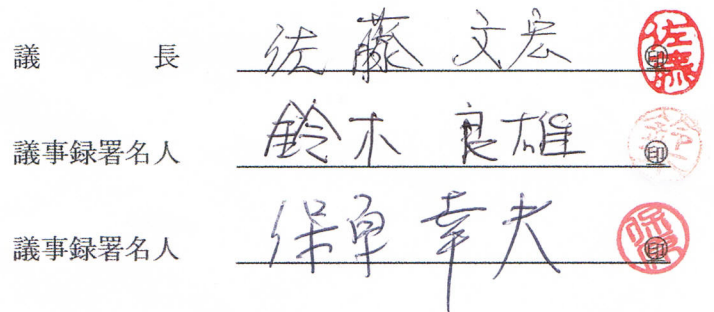 議長 佐藤 文宏 ㊞ 佐藤
議事録署名人 鈴木 良雄 ㊞ 鈴木
議事録署名人 保 幸夫 ㊞